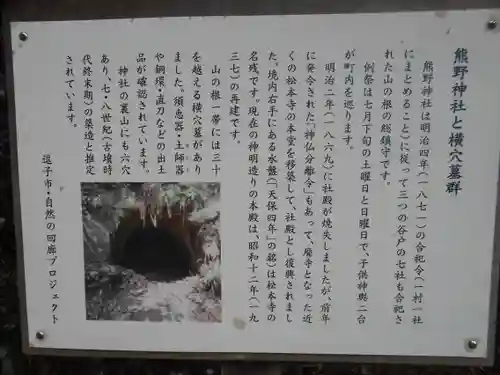 熊野神社と横穴墓群
熊野神社は明治四年(一八七一)の合祀令(一村一社
にまとめること)に従って三つの谷戸の七社も合祀さ
れた山の根の総鎮守です。
例祭は七月下旬の土曜日と日曜日で、子供神輿二台
が町内を巡ります。
明治二年(一八六九)に社殿が焼失しましたが、前年
に発令された「神仏分離令」もあって、廃寺となった近
くの松本寺の本堂を移築して、社殿とし復興されまし
た。境内右手にある水盤(「天保四年」の銘)は松本寺の
名残です。現在の神明造りの本殿は、昭和十二年(一九
三七)の再建です。
山の根一帯には三十
を越える横穴墓があり
ました。須恵器・土師器
や銅環・直刀などの出土
品が確認されています。
神社の裏山にも六穴
あり、七・八世紀(古墳時
代終末期)の築造と推定
されています。
逗子市・自然の回廊プロジェクト